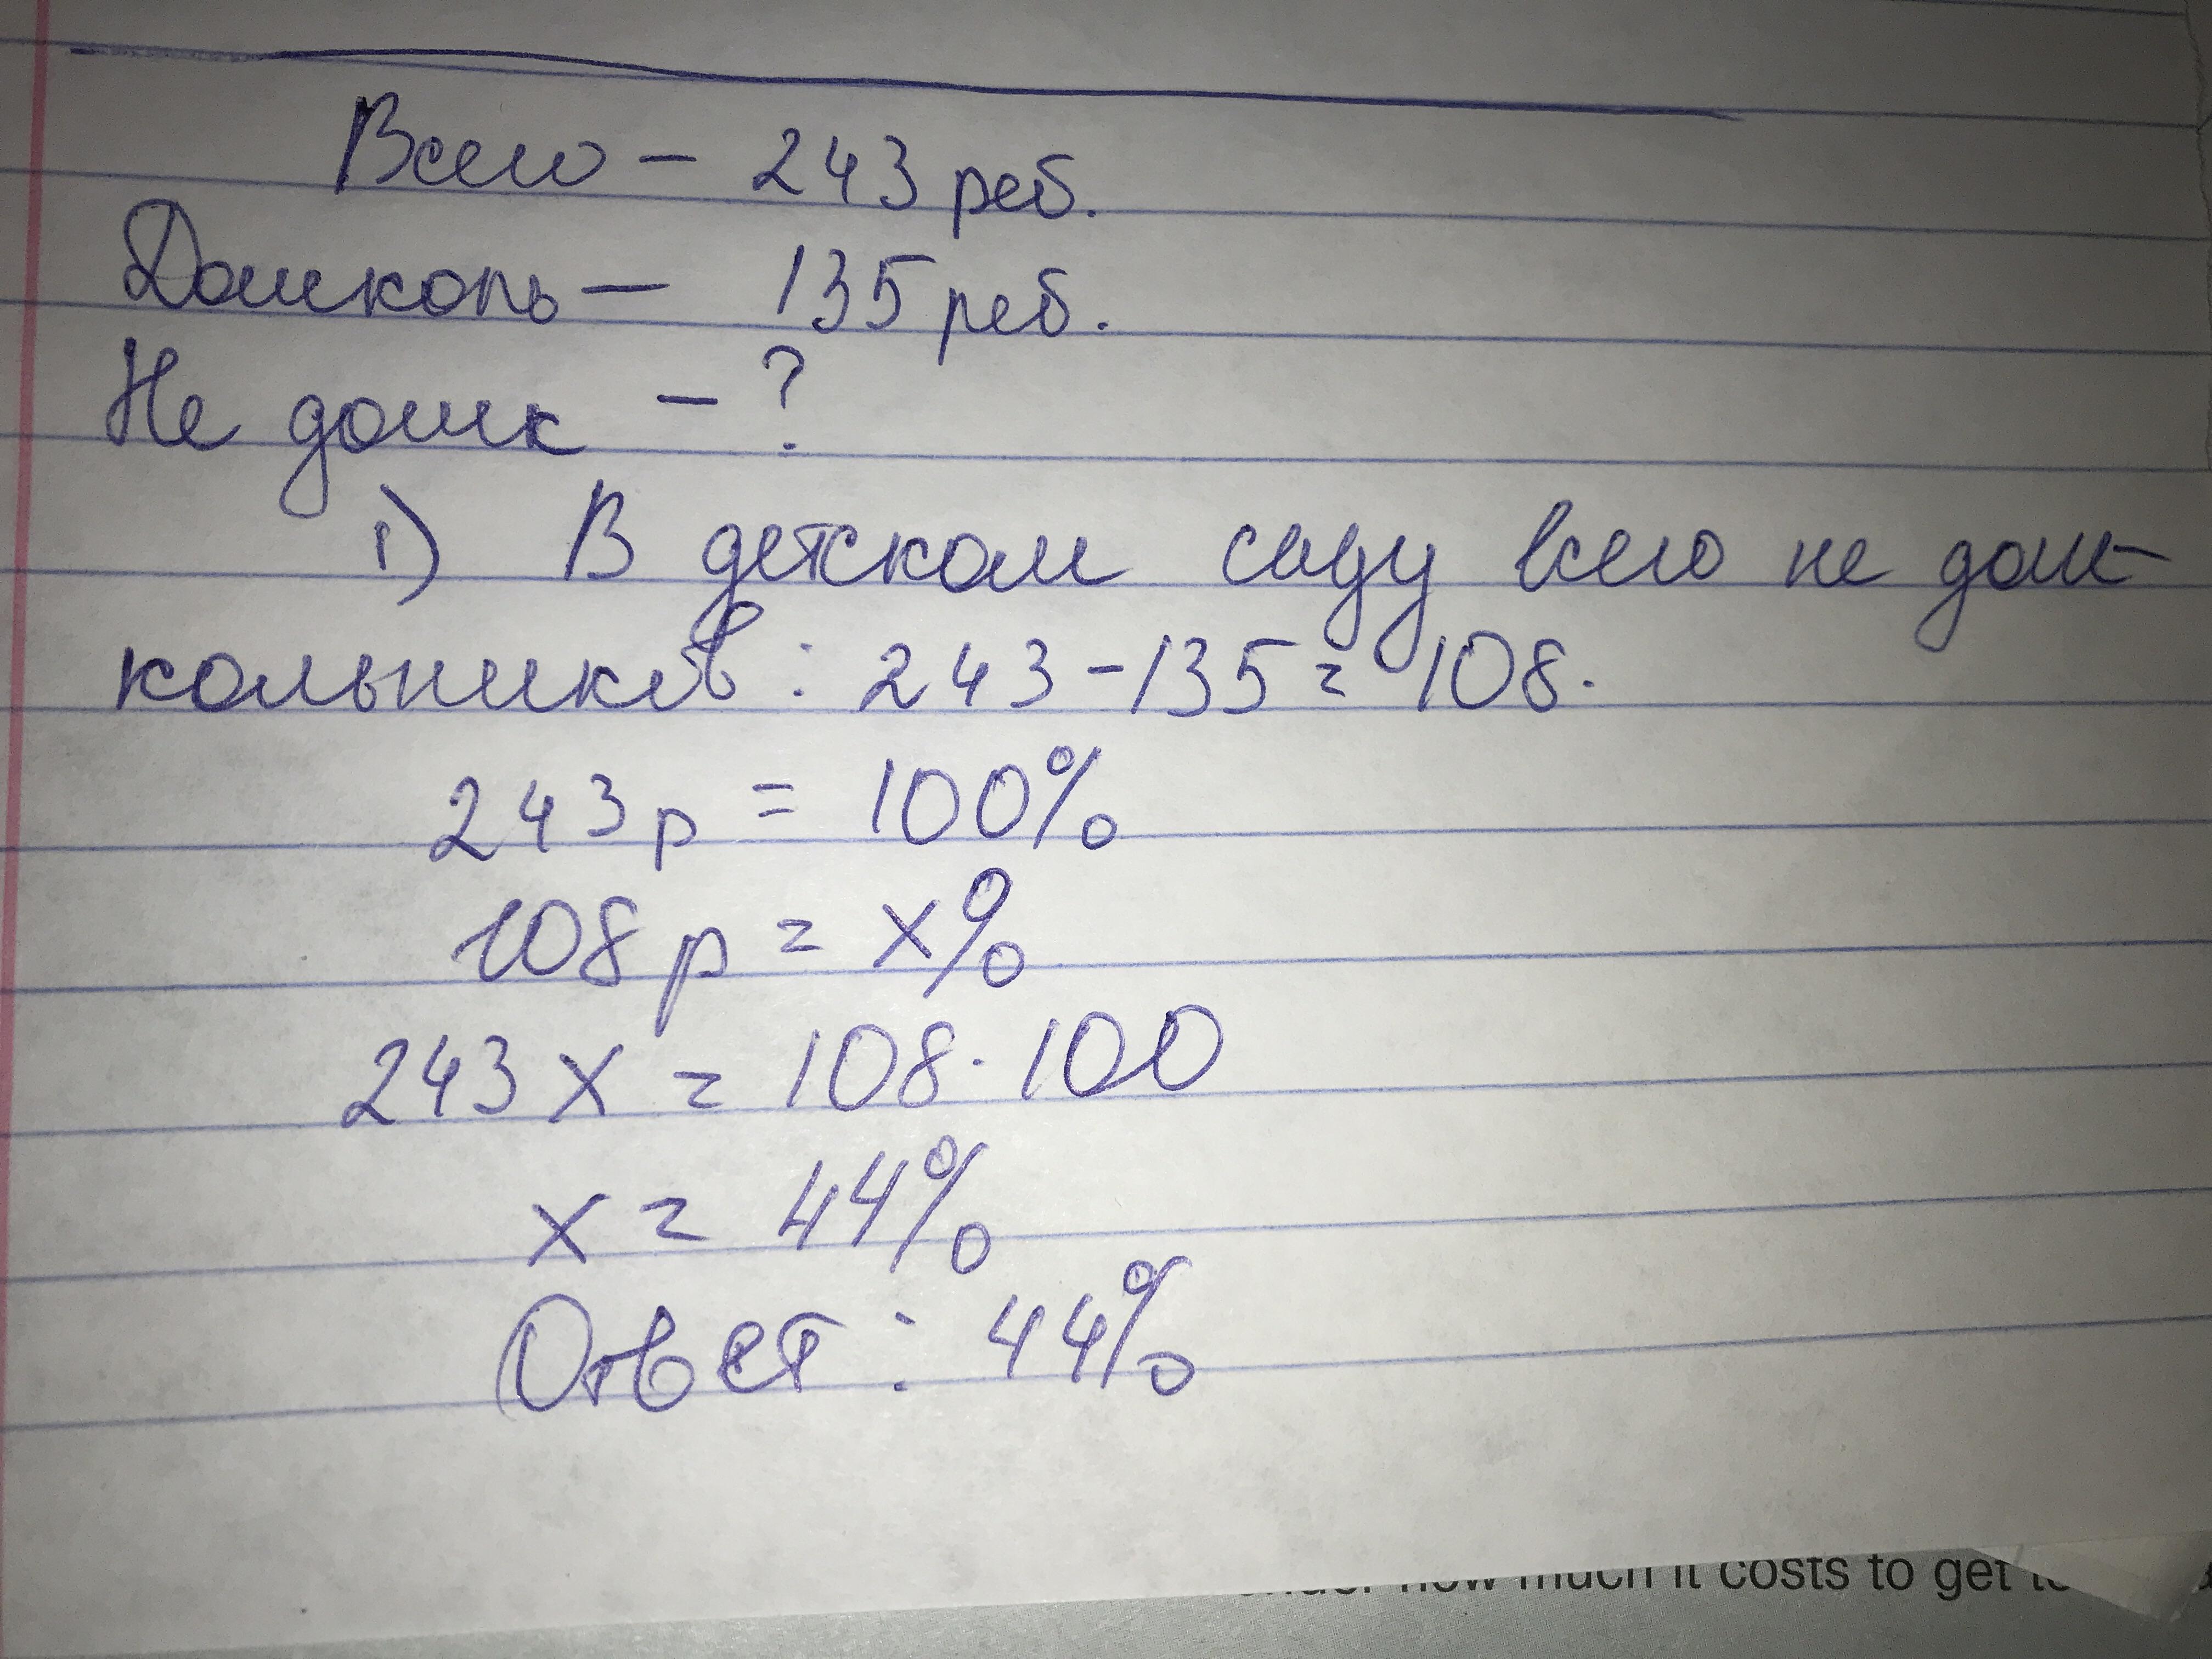 Всего – 243 реб.
Дошколь – 135 реб.
Не дошк – ?
1) В детском саду всего не дош-
кольников : 243 – 135 = 108.
243 р = 100%
108 р = х%
243 х = 108 · 100
х = 44%
Ответ : 44%
how much it costs to get